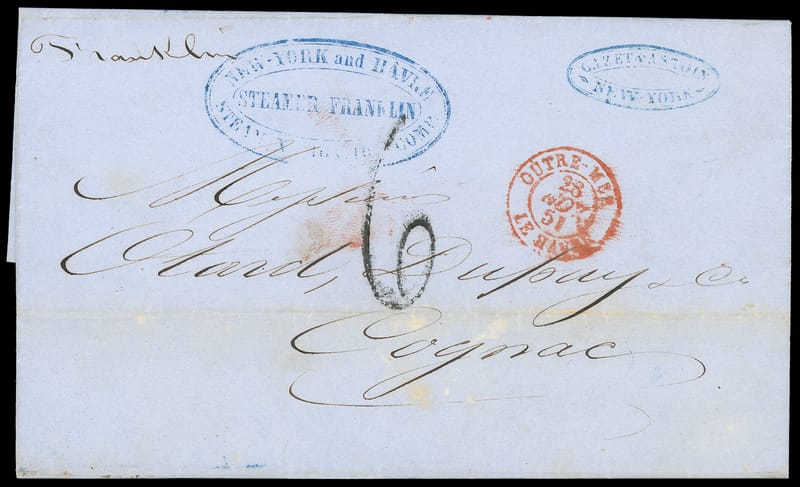 Franklin
NEW-YORK and HAVRE
STEAMER FRANKLIN
STEAM COMP
CAZET & ASTOIN
NEW-YORK
OUTRE-MER
28
51
LE HAVRE
6
Messieurs
Otard, Dupuy & Co
Cognac